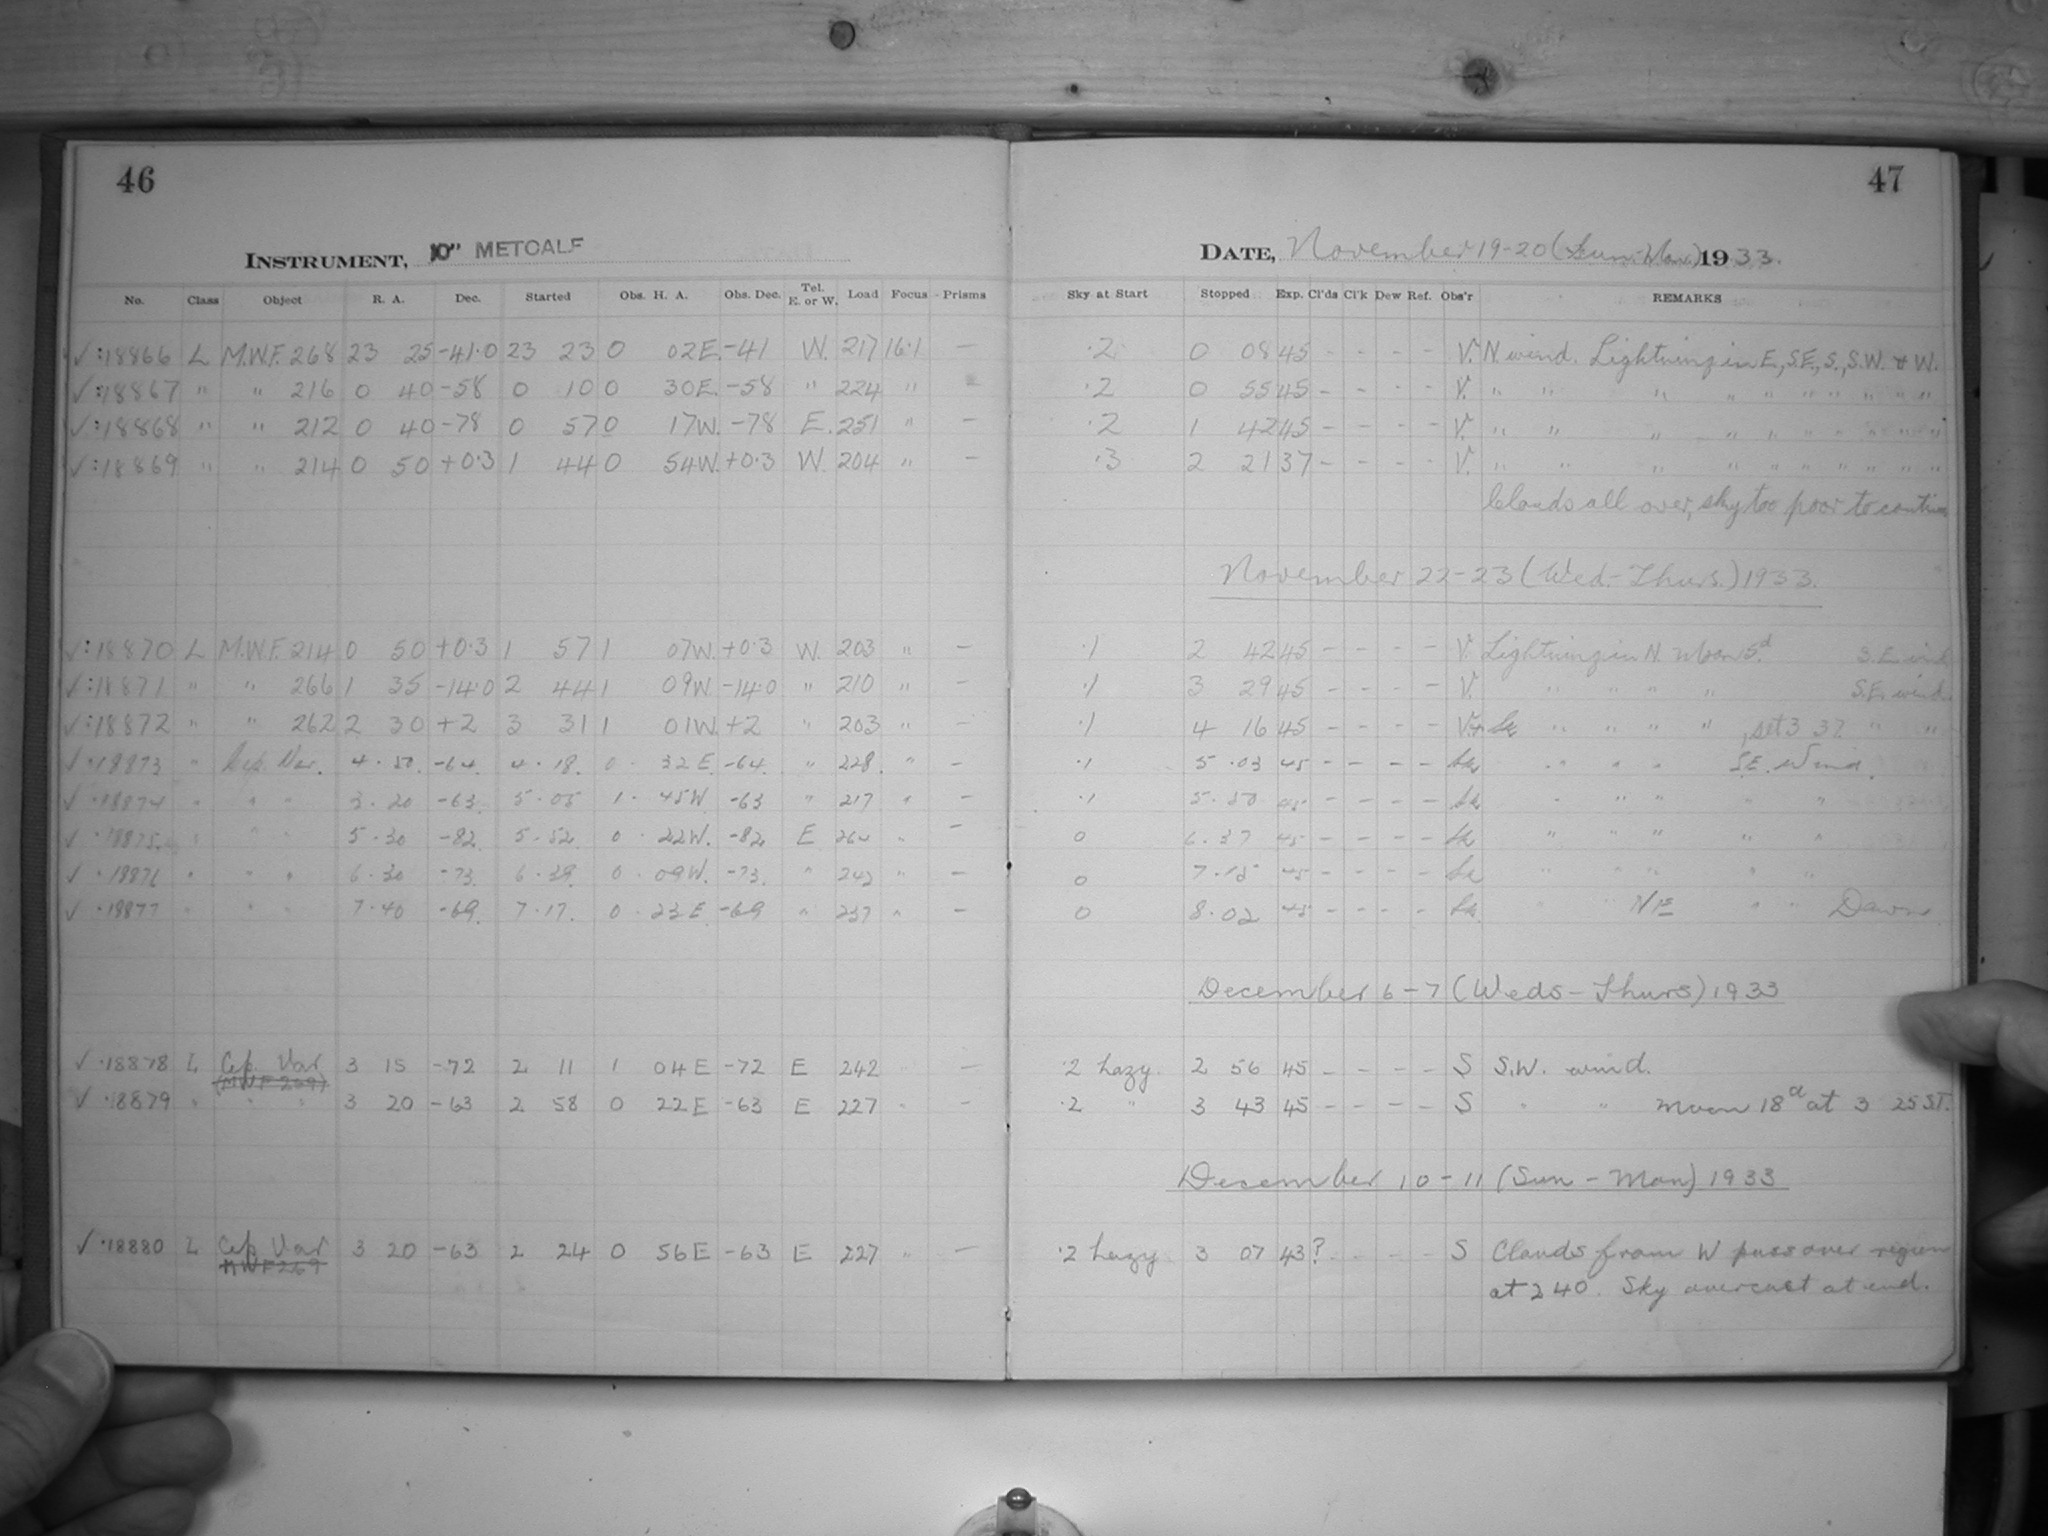 46
INSTRUMENT, 10" METCALF
No. Class Object R. A. Dec. Started Obs. H. A. Obs. Dec. Tel. E. or W. Load Focus Prisms
✓ :18866 L M.W.F. 268 23 25 -41.0 23 23 0 02E. -41 W. 217 16.1 —
✓ :18867 " " 216 0 40 -58 0 10 0 30E. -58 " 224 " —
✓ :18868 " " 212 0 40 -78 0 57 0 17W. -78 E. 251 " —
✓ :18869 " " 214 0 50 +0.3 1 44 0 54W. +0.3 W. 204 " —
✓ :18870 L M.W.F. 214 0 50 +0.3 1 57 1 07W. +0.3 W. 203 " —
✓ :18871 " " 266 1 35 -14.0 2 44 1 09W. -14.0 " 210 " —
✓ :18872 " " 262 2 30 +2 3 31 1 01W. +2 " 203 " —
✓ .18873 " Cep. Var. 4.50. -64. 4.18. 0. 32E. -64. " 228. " —
✓ .18874 " " " 3.20 -63. 5.05 1. 45W -63 " 217 " —
✓ .18875 " " " 5.30 -82. 5.52. 0. 22W. -82. E " —
✓ .18876 " " " 6.30 -73. 6.39. 0. 09W. -73. " 242 " —
✓ .18877 " " " 7.40 -69. 7.17. 0. 23E -69 " 237 " —
✓ .18878 L Cep. Var 3 15 -72 2 11 1 04E -72 E 242 —
(MWF 269)
✓ .18879 " " " 3 20 -63 2 58 0 22E -63 E 227 " —
✓ .18880 L Cep. Var 3 20 -63 2 24 0 56E -63 E 227 " —
MWF 269
47
DATE, November 19-20 (Sun.-Mon.) 1933.
Sky at Start Stopped Exp. Cl'ds Cl'k Dew Ref. Obs'r REMARKS
.2 0 08 45 - - - - V. N. wind. Lightning in E., S.E., S., S.W. & W.
.2 0 55 45 - - - - V. " " " " " " " " "
.2 1 42 45 - - - - V. " " " " " " " " "
.3 2 21 37 - - - - V. " " " " " " " " "
Clouds all over, sky too poor to continue
November 22-23 (Wed.-Thurs.) 1933.
.1 2 42 45 - - - - V. Lightning in N. Moon 5d. S.E. wind
.1 3 29 45 - - - - V. " " " " S.E. wind
.1 4 16 45 - - - - V. " " " " , set 3 37. " "
.1 5.03 45 - - - - " " " S.E. Wind.
.1 5.50 45 - - - - " " " " "
0 6.37 45 - - - - " " " " "
0 7. 45 - - - - " " " " "
0 8.02 45 - - - - " " NE " " Dawn
December 6-7 (Weds-Thurs) 1933
.2 hazy. 2 56 45 - - - - S S.W. wind.
.2 " 3 43 45 - - - - S " " Moon 18d at 3 25 ST.
December 10-11 (Sun-Mon) 1933
.2 hazy 3 07 43? - - - - S Clouds from W pass over region
at 2 40. Sky overcast at end.